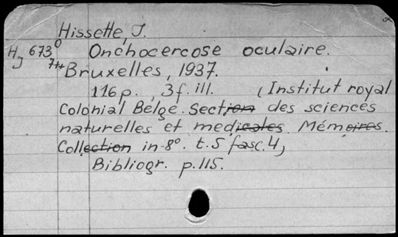 Hissette, J.
H 673° Onchocercose oculaire.
Bruxelles, 1937.
116p., 3f. ill. (Institut royal
Colonial Belge. Section des sciences
naturelles et medicales. Mémoires.
Collection in-8°. t.5 fasc.4)
Bibliogr. p.115.